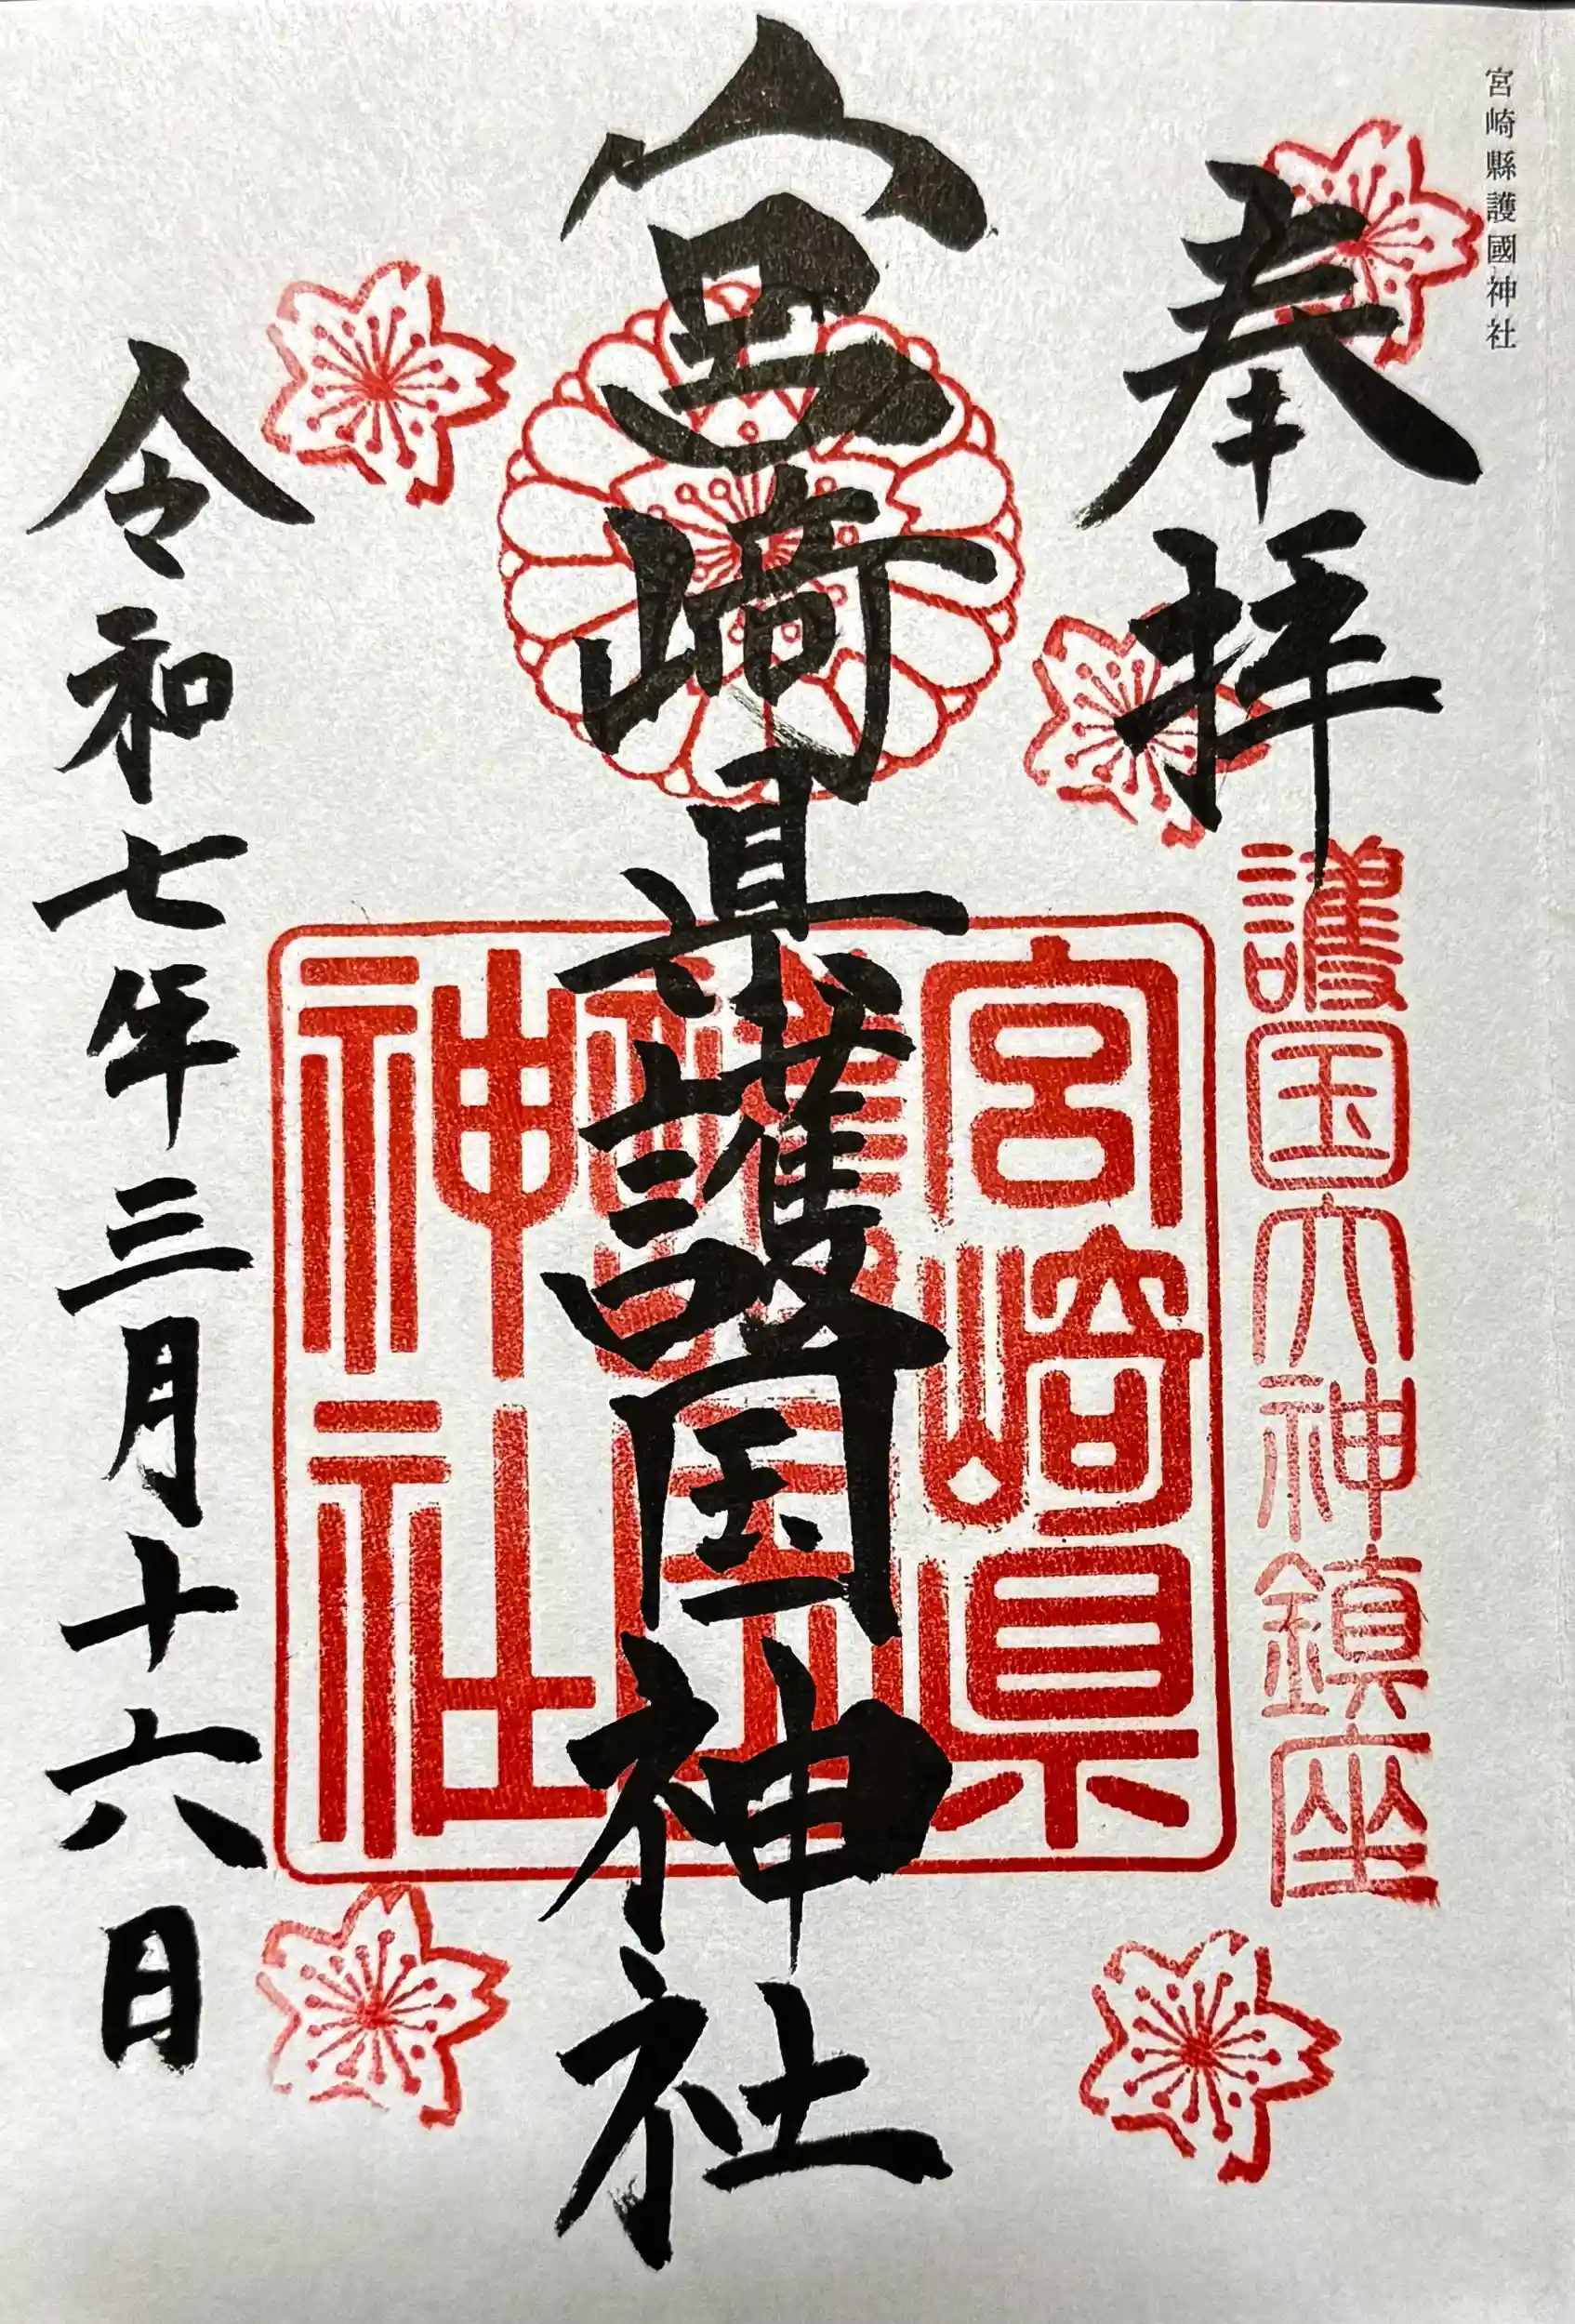 宮崎縣護國神社
奉拝
護国大神鎮座
宮崎県護国神社
宮崎県
護国
神社
令和七年三月十六日